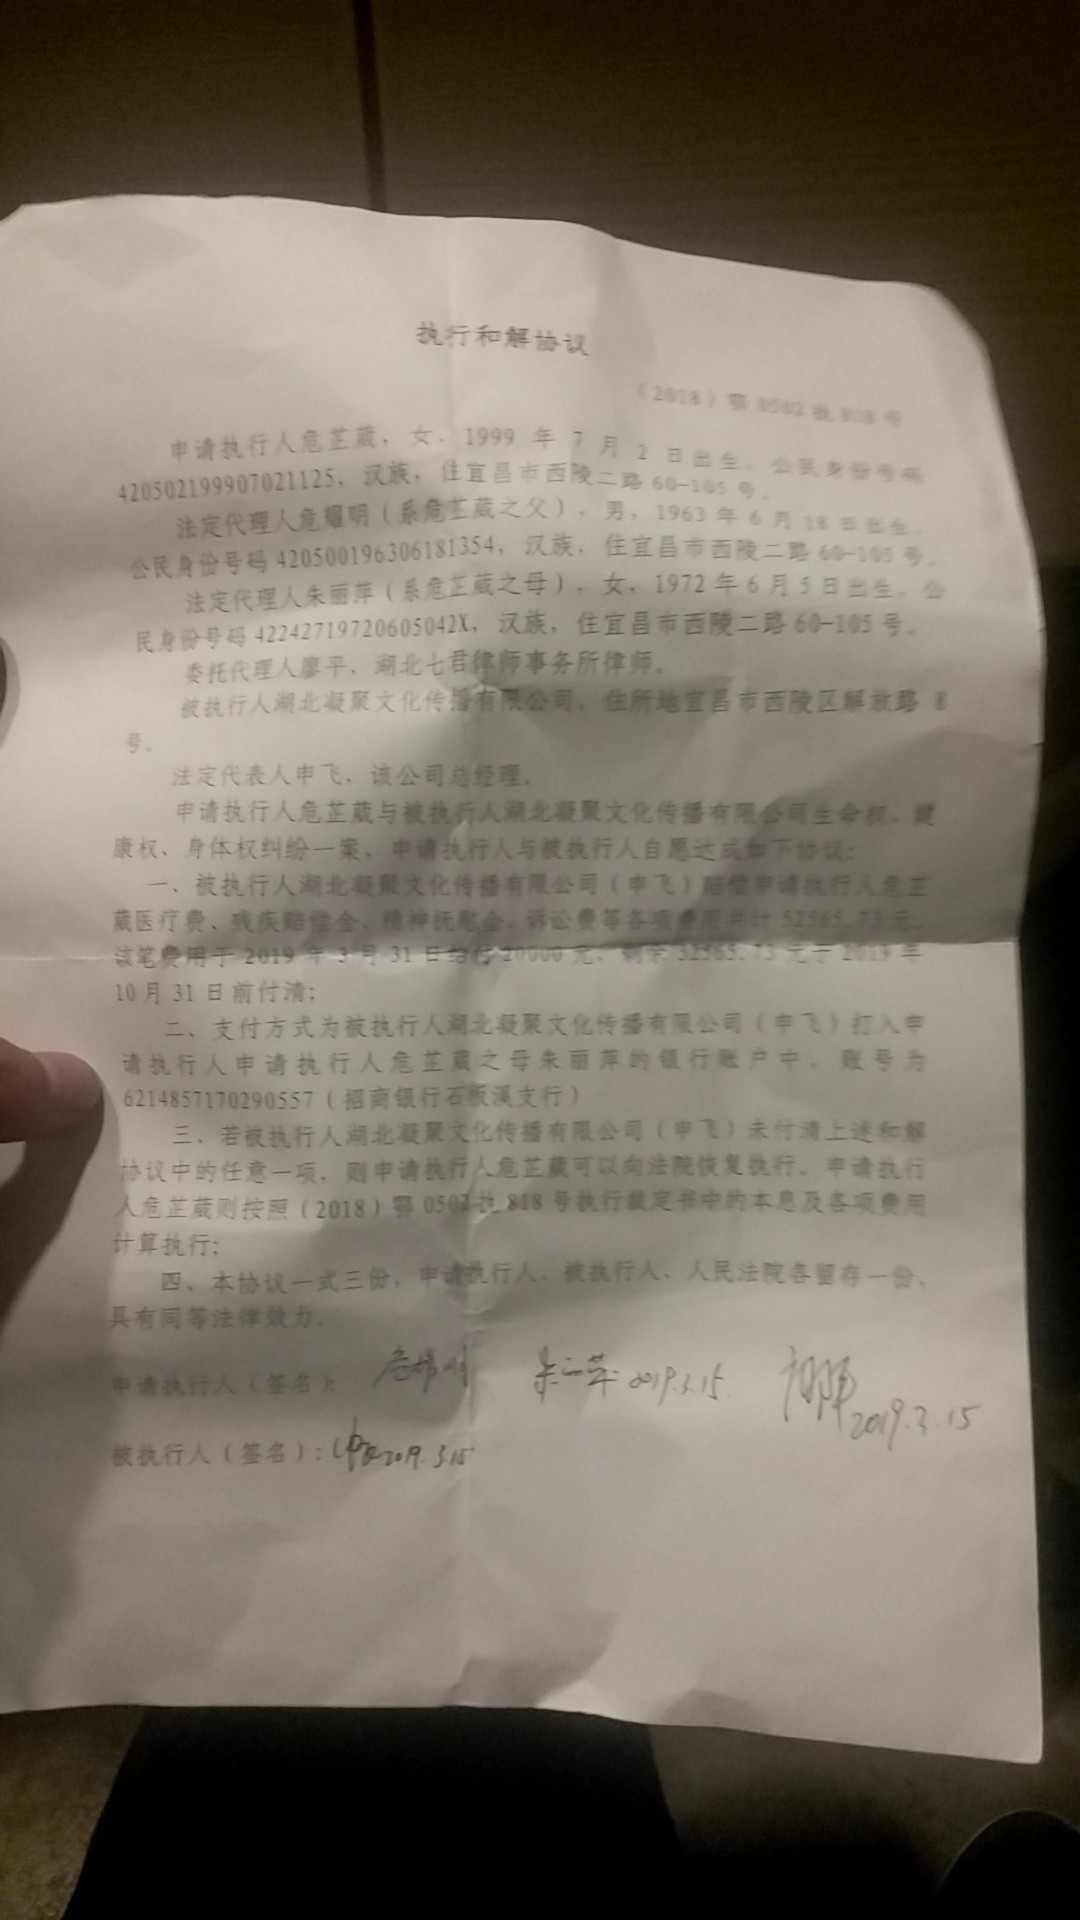 执行和解协议
（2018）鄂 0502 执 818 号
申请执行人危芷葳，女，1999 年 7 月 2 日出生，公民身份号码
420502199907021125，汉族，住宜昌市西陵二路 60-105 号。
法定代理人危耀明（系危芷葳之父），男，1963 年 6 月 18 日出生，
公民身份号码 420500196306181354，汉族，住宜昌市西陵二路 60-105 号。
法定代理人朱丽萍（系危芷葳之母），女，1972 年 6 月 5 日出生，公
民身份号码 42242719720605042X，汉族，住宜昌市西陵二路 60-105 号。
委托代理人廖平，湖北七君律师事务所律师。
被执行人湖北凝聚文化传播有限公司，住所地宜昌市西陵区解放路 8
号。
法定代表人申飞，该公司总经理。
申请执行人危芷葳与被执行人湖北凝聚文化传播有限公司生命权、健
康权、身体权纠纷一案，申请执行人与被执行人自愿达成如下协议：
一、被执行人湖北凝聚文化传播有限公司（申飞）赔偿申请执行人危芷
葳医疗费、残疾赔偿金、精神抚慰金、诉讼费等各项费用共计 52565.73 元，
该笔费用于 2019 年 3 月 31 日给付 20000 元，剩余 32565.73 元于 2019 年
10 月 31 日前付清；
二、支付方式为被执行人湖北凝聚文化传播有限公司（申飞）打入申
请执行人申请执行人危芷葳之母朱丽萍的银行账户中，账号为
6214857170290557（招商银行石板溪支行）
三、若被执行人湖北凝聚文化传播有限公司（申飞）未付清上述和解
协议中的任意一项，则申请执行人危芷葳可以向法院恢复执行。申请执行
人危芷葳则按照（2018）鄂 0502 执 818 号执行裁定书中的本息及各项费用
计算执行；
四、本协议一式三份，申请执行人、被执行人、人民法院各留存一份，
具有同等法律效力。
申请执行人（签名）： 危耀明 朱丽萍 2019.3.15 2019.3.15
被执行人（签名）：申飞 2019.3.15